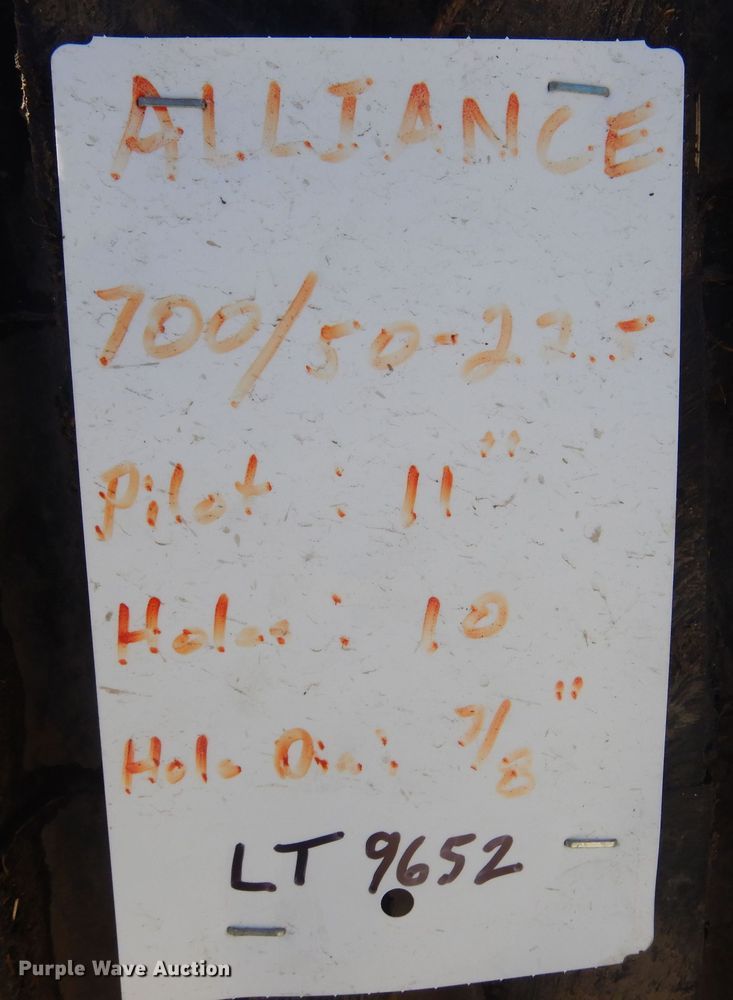 ALLIANCE
700/50-22.5
Pilot : 11"
Holes : 10
Hole Dia: 7/8"
LT 9652
Purple Wave Auction